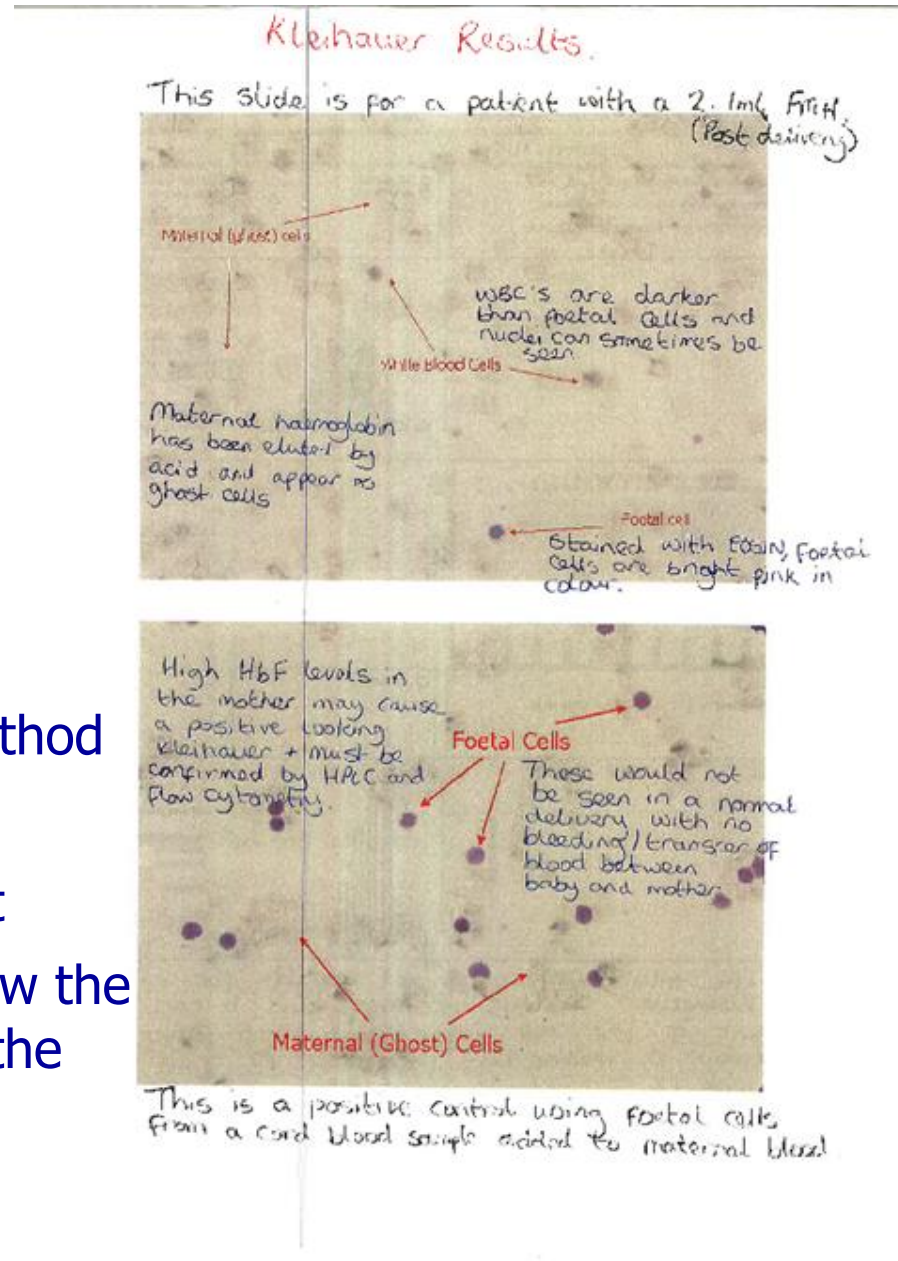 Kleihauer Results.
This slide is for a patient with a 2.1mL FMH.
(Post delivery)
Maternal (ghost) cells
WBC's are darker
than foetal cells and
nuclei can sometimes be
seen
White Blood Cells
Maternal haemoglobin
has been eluted by
acid and appear as
ghost cells
Foetal cell
Stained with EOSIN, Foetal
cells are bright pink in
colour.
High HbF levels in
the mother may cause
a positive looking
Kleihauer + must be
confirmed by HPLC and
Flow cytometry.
Foetal Cells
These would not
be seen in a normal
delivery with no
bleeding/transfer of
blood between
baby and mother
thod
t
w the
the
Maternal (Ghost) Cells
This is a positive control using foetal cells
from a cord blood sample added to maternal blood